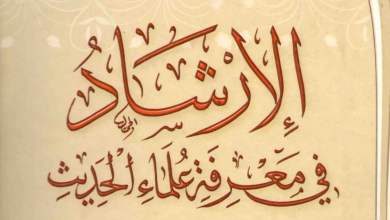 الإِرْشَادُ
فِي مَعْرِفَةِ عُلَمَاءِ الْحَدِيثِ